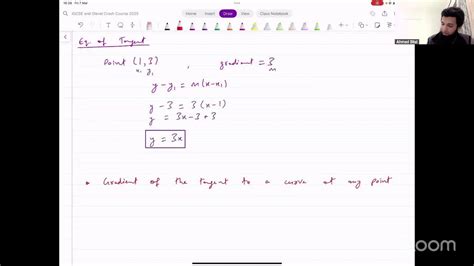 IGCSE and Olevel Crash Course 2025
Class Notebook
Ahmed Bilal
Eq. of Tangent
Point (1,3), gradient = 3
x₁ y₁ m
y - y₁ = m(x-x₁)
y - 3 = 3(x-1)
y = 3x - 3 + 3
y = 3x
* Gradient of the tangent to a curve at any point
zoom